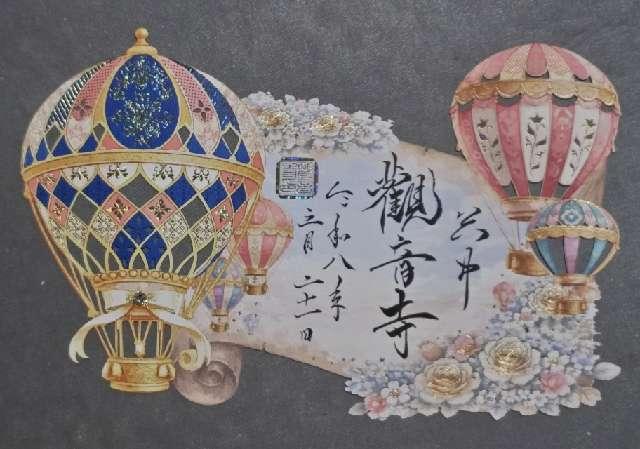 谷中
觀音寺
令和八年
三月二十一日